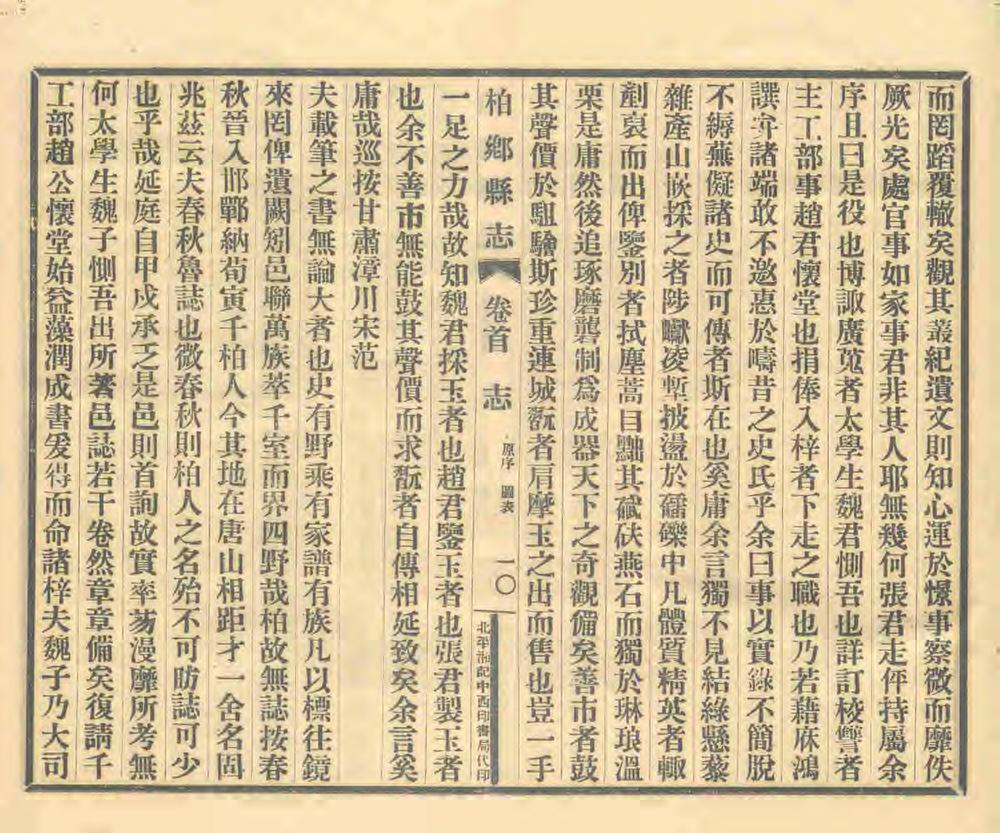 而罔蹈覆轍矣觀其叢紀遺文則知心運於憬事察微而靡佚
厥光矣處官事如家事君非其人耶無幾何張君走伻持屬余
序且曰是役也博諏廣蒐者太學生魏君惻吾也詳訂校讐者
主工部事趙君懷堂也捐俸入梓者下走之職也乃若藉庥鴻
譔弁諸端敢不邀惠於疇昔之史氏乎余曰事以實錄不簡脫
不縟蕪儗諸史而可傳者斯在也奚庸余言獨不見結綠懸藜
雜產山嵌採之者陟巘凌塹披盪於礌礫中凡體質精英者輙
剷裒而出俾鑒別者拭塵蒿目黜其碱砆燕石而獨於琳琅溫
栗是庸然後追琢磨礲制爲成器天下之奇觀備矣善市者鼓
其聲價於駔驗斯珍重連城翫者肩摩玉之出而售也豈一手
柏鄉縣志 卷首 志 原序 圖表 一〇 北平淵記中西印書局代印
一足之力哉故知魏君採玉者也趙君鑒玉者也張君製玉者
也余不善市無能鼓其聲價而求翫者自傳相延致矣余言奚
庸哉巡按甘肅漳川宋范
夫載筆之書無論大者也史有野乘有家譜有族凡以標往鏡
來罔俾遺闕矧邑聯萬族萃千室而界四野哉柏故無誌按春
秋晉入邯鄲納荀寅千柏人今其地在唐山相距才一舍名固
兆茲云夫春秋魯誌也微春秋則柏人之名殆不可昉誌可少
也乎哉延庭自甲戍承乏是邑則首詢故實率蕩漫靡所考無
何太學生魏子惻吾出所著邑誌若干卷然章章備矣復請千
工部趙公懷堂始益藻潤成書爰得而命諸梓夫魏子乃大司